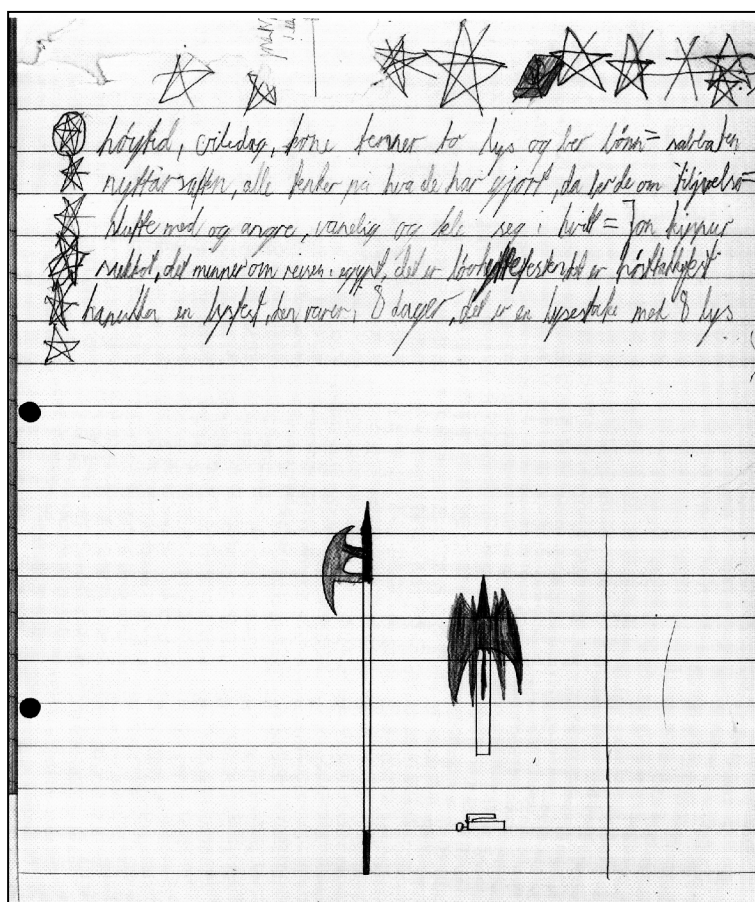 høytid, viledag, kone tenner to lys og ber bønn = sabbaten
nyttårsaften, alle tenker på hva de har gjort, da ber de om tiljvelse
slutte med og angre, vanelig og kle seg i hvitt = Jon kippur
sukkot, det minner om reisen i egypt, det er løvhyttefesten det er høsttakkfest
hanukka en lysfest, den varer i 8 dager, det er en lysestake med 8 lys